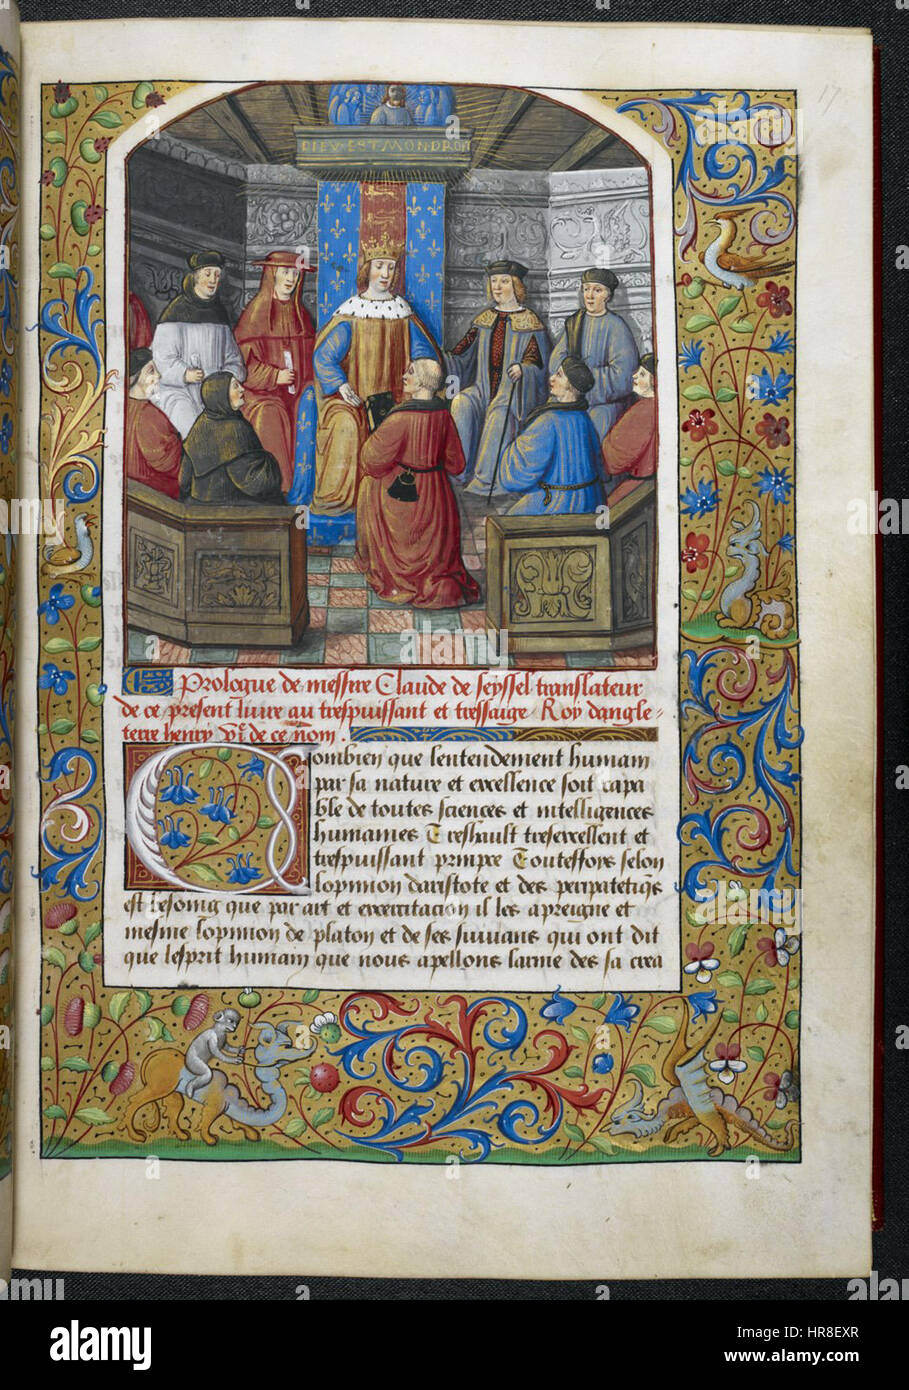 17
DIEV·EST·MON·DROIT
Prologue de messire Claude de seyssel translateur
de ce present liure au trespuissant et tressaige Roy dangle-
terre henry vij de ce nom
Combien que lentendement humain
par sa nature et excellence soit capa
ble de toutes sciences et intelligences
humaines Treshault tresexcellent et
trespuissant prince Toutesfois selon
lopinion daristote et des peripateticqs
est besoing que par art et exercitacion il les apreigne et
mesme lopinion de platon et de ses suiuans qui ont dit
que lesprit humain que nous apellons lame des sa crea
alamy
Image ID: HR8EXR
www.alamy.com